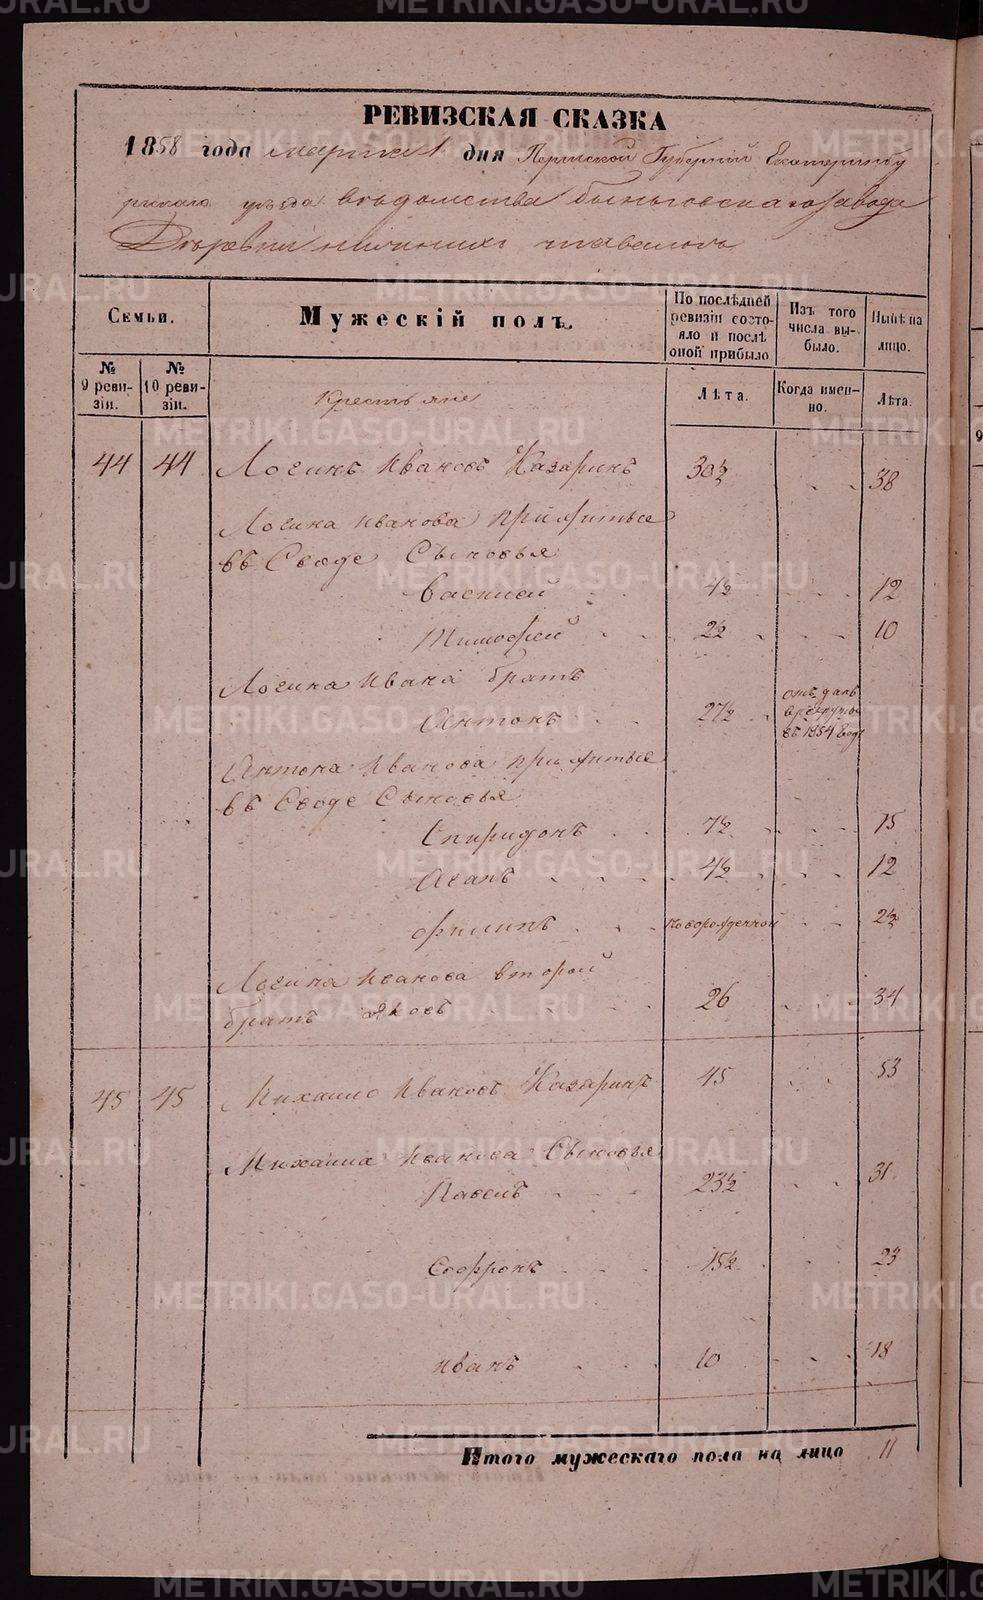 РЕВИЗСКАЯ СКАЗКА
1858 года марта 1 дня Пермской Губернии Екатеринбу
ргскаго уезда ведомства быньговскаго завода
Деревни нижнихъ тавологъ
Семьи.
Мужескій полъ.
По послѣдней ревизіи состояло и послѣ оной прибыло
Изъ того числа выбыло.
Нынѣ на лицо.
№ 9 ревизіи.
№ 10 ревизіи.
Лѣта.
Когда именно.
Лѣта.
Крестьяне
44 44 Логинъ Ивановъ Казаринъ 30½ 38
Логина Иванова прижитые
въ Сводѣ Сыновья
Василей 4½ 12
Тимофей 2½ 10
Логина Ивана братъ
Антонъ 27½ отъданъ в рекруты въ 1854 году
Антона Иванова прижитые
въ Сводѣ Сыновья
Спиридонъ 7½ 15
Агапъ 4½ 12
Филипъ новорожденной 2½
Логина Иванова второй
братъ Яковъ 26 34
45 45 Михаило Ивановъ Казаринъ 45 53
Михаила Иванова Сыновья
Павелъ 23½ 31
Софронъ 15½ 23
Иванъ 10 18
Итого мужескаго пола на лицо 11
METRIKI.GASO-URAL.RU